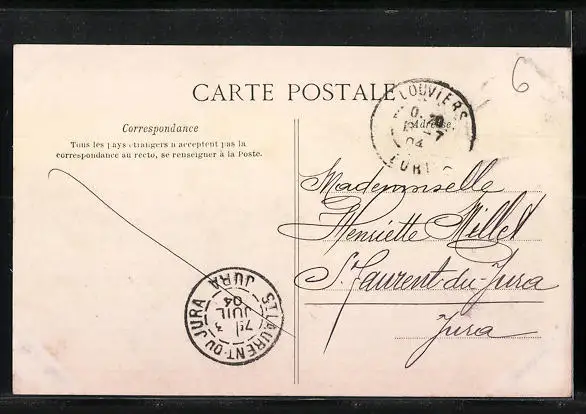 6
CARTE POSTALE
Correspondance
Tous les pays étrangers n'acceptent pas la
correspondance au recto, se renseigner à la Poste.
LOUVIERS
Adresse.
7
04
EURE
Mademoiselle
Henriette Millet
St Laurent-du-Jura
Jura
ST LAURENT-DU-JURA
3
JUIL
04
JURA